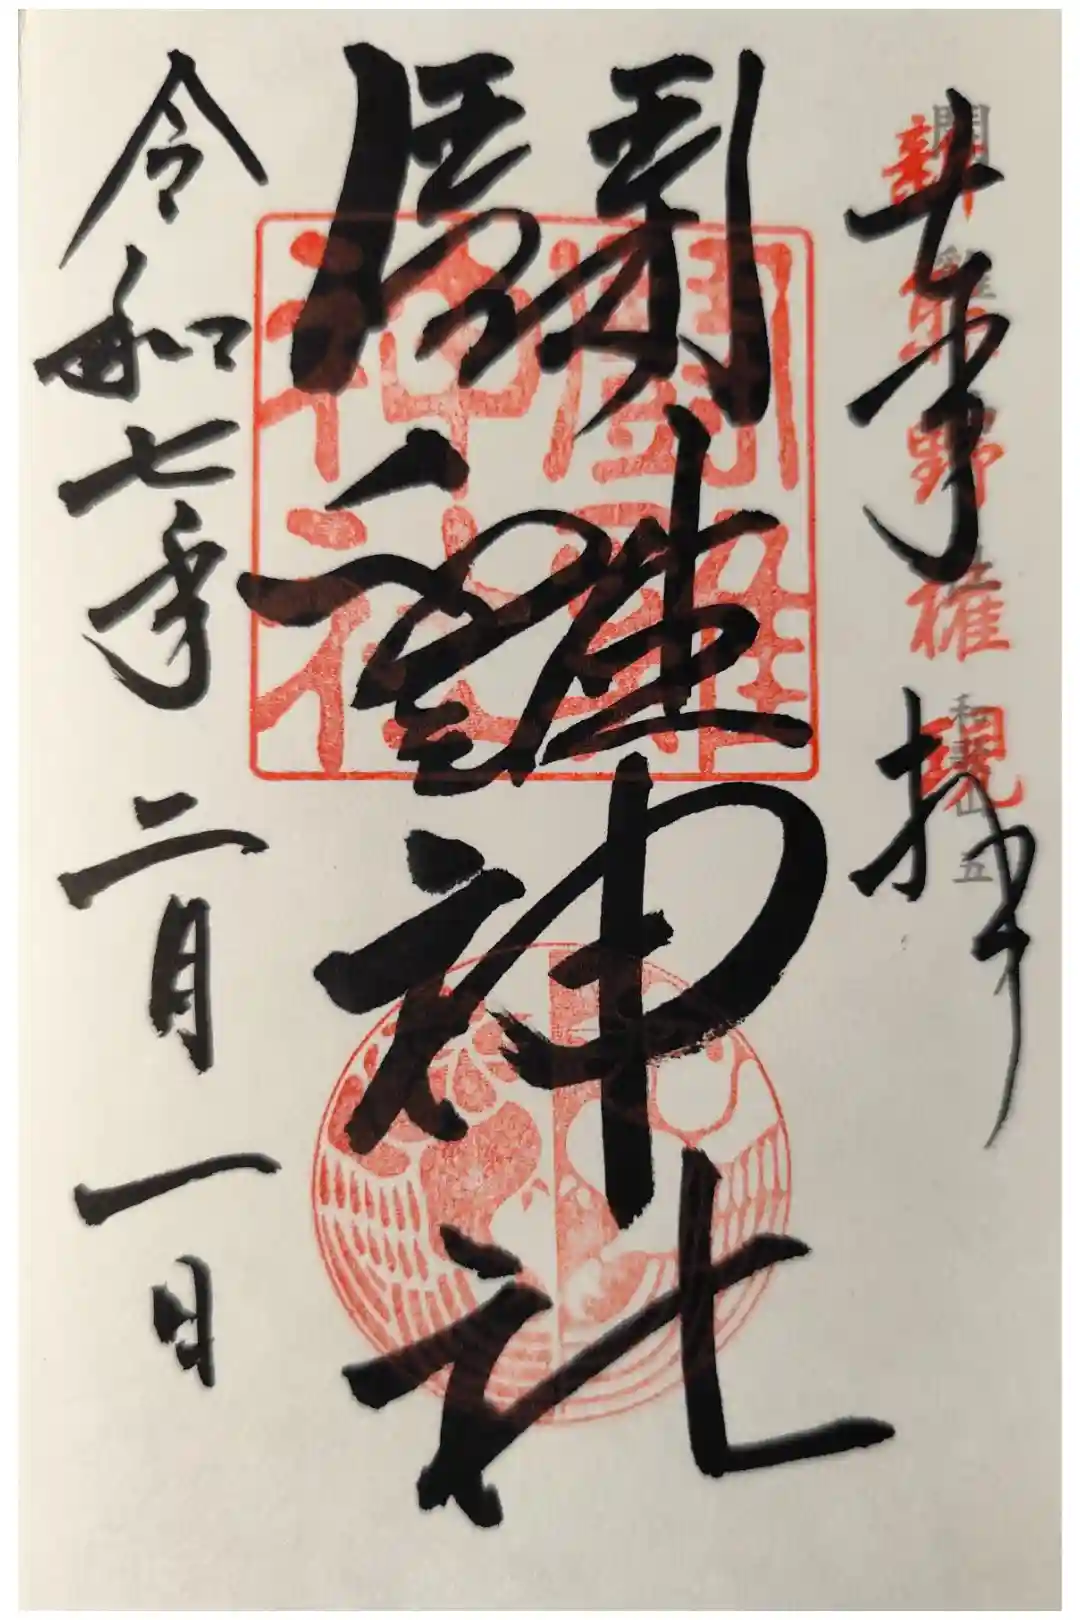 奉拝
新熊野権現
闘雞神社
闘雞神社
令和七年二月一日